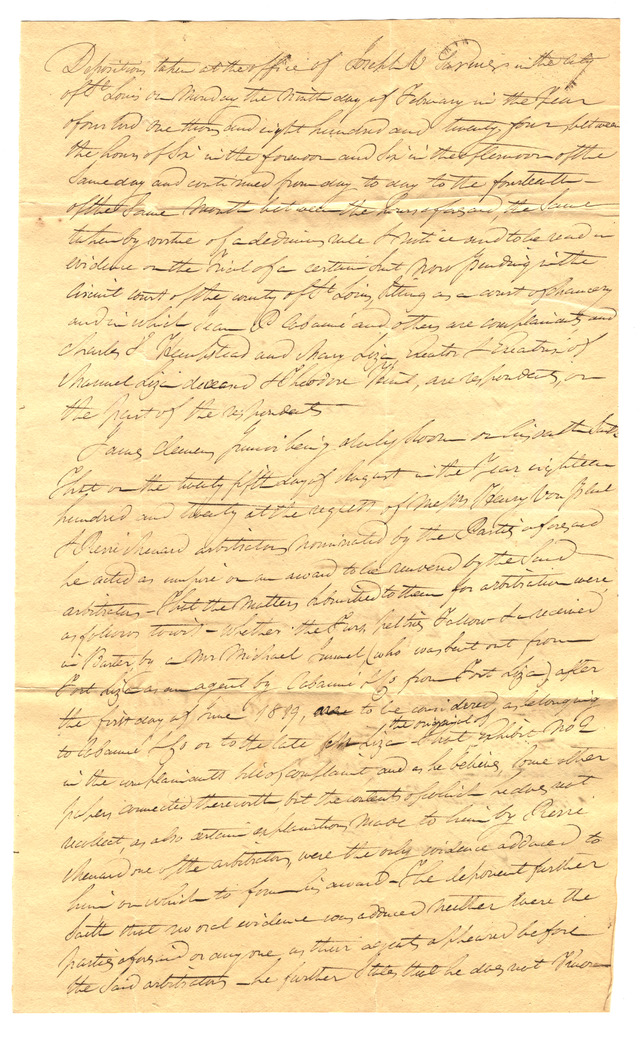 Deposition taken at the office of Joseph V Garnier in the city
of St Louis on Monday the Ninth day of February in the Year
of our lord one thousand eight hundred and twenty four between
the hours of Six in the forenoon and Six in the afternoon of the
same day and continued from day to day to the fourteenth
of the Same Month between the hours aforesaid the Same
taken by virtue of a dedimus rule & notice and to be read in
evidence on the trial of a certain Suit now pending in the
Circuit court of the county of St Louis, Sitting as a court of chancery
and in which Jean P Cabanné and others are complainants and
Charles S Hempstead and Mary Liza, executor & Executrix of
Manuel Liza deceased & Theodore Hunt, are respondents, on
the part of the respondents
James Clemens Junior being duly Sworn on his oath Saith
That on the twenty fifth day of August in the Year eighteen
hundred and twenty at the request of Messrs Henry Von Phul
& Pierre Menard arbitrators nominated by the Parties aforesaid
he acted as umpire on an award to be rendered by the Said
arbitrators - That the Matters submitted to them for arbitration were
as follows to wit - whether the Furs, peltries Tallow &c received
in Barter by a Mr Michael Immel (who was sent out from
Fort Liza as an agent by Cabanné & Co from Fort Liza) after
the first day of June 1819, to be considered as belonging
to Cabanné & Co or to the late Liza That the original of exhibit No 2
in the complainants bill of complaint and as he believes, Some other
papers connected therewith but the contents of which he does not
recollect, as also certain explanations made to him by Pierre
Menard one of the arbitrators, were the only evidence adduced to
him on which to form his award - The deponent further
Saith that no oral evidence was adduced neither were the
parties aforesaid or any one, as their agents appeared before
the Said arbitrators - he further States that he does not Know